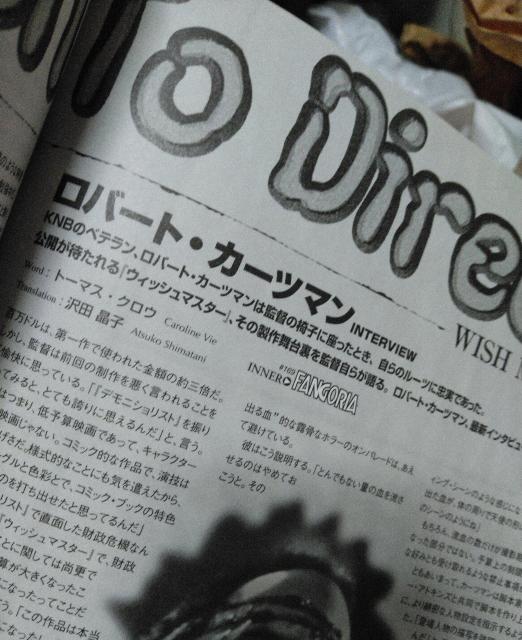 To Dire
ロバート・カーツマン
INTERVIEW
WISH
KNBのベテラン、ロバート・カーツマンは監督の椅子に座ったとき、自らのルーツに忠実であった。
公開が待たれる『ウィッシュマスター』、その製作舞台裏を監督自らが語る。ロバート・カーツマン、最新インタビュ
Word : トーマス・クロウ Caroline Vie
Translation : 沢田 晶子 Atsuko Shimatani
#169
INNER FANGORIA
百万ドルは、第一作で使われた金額の約三倍だ。
しかし、監督は前回の制作を悪く言われることを
愉快に思っている。「『デモニショリスト』を振り
てみると、とても誇りに思えるんだ」と、言う。
はつまり、低予算映画であって、キャラクター
映画じゃない。コミック的な作品で、演技は
げさだ。様式的なことにも気を遣えたから、
グルと色彩とで、コミック・ブックの特色
のを打ち出せたと思ってるんだ」
リスト』で直面した財政危機なん
『ウィッシュマスター』で、財政
ことに関しては尚更で
算が大きくなったこ
になったってことだ
う。「この作品は本当
になった
出る血”的な露骨なホラーのオンパレードは、あえ
て避けている。
彼はこう説明する。「とんでもない量の血を流さ
せるのはやめてお
こうと。その
イング・シーンのような感じにな
出た血が、体の周りで天使の形
のシーンのようにね」
もちろん、流血の数だけが撮影
なった部分ではない。予算上の制
な好みとも受け取れるような禁止事項
ともあいまって、カーツマンは脚本家